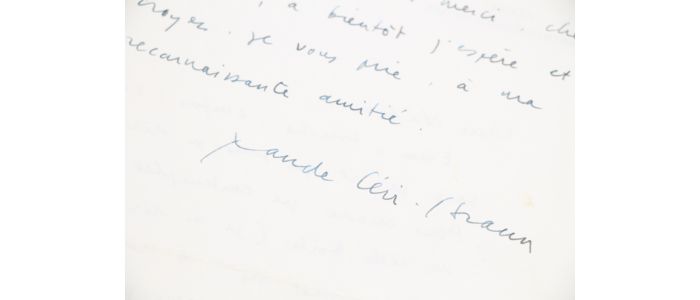 merci, che
à bientôt j'espère et
royez, je vous prie, à ma
reconnaissante amitié.
Claude Lévi-Strauss